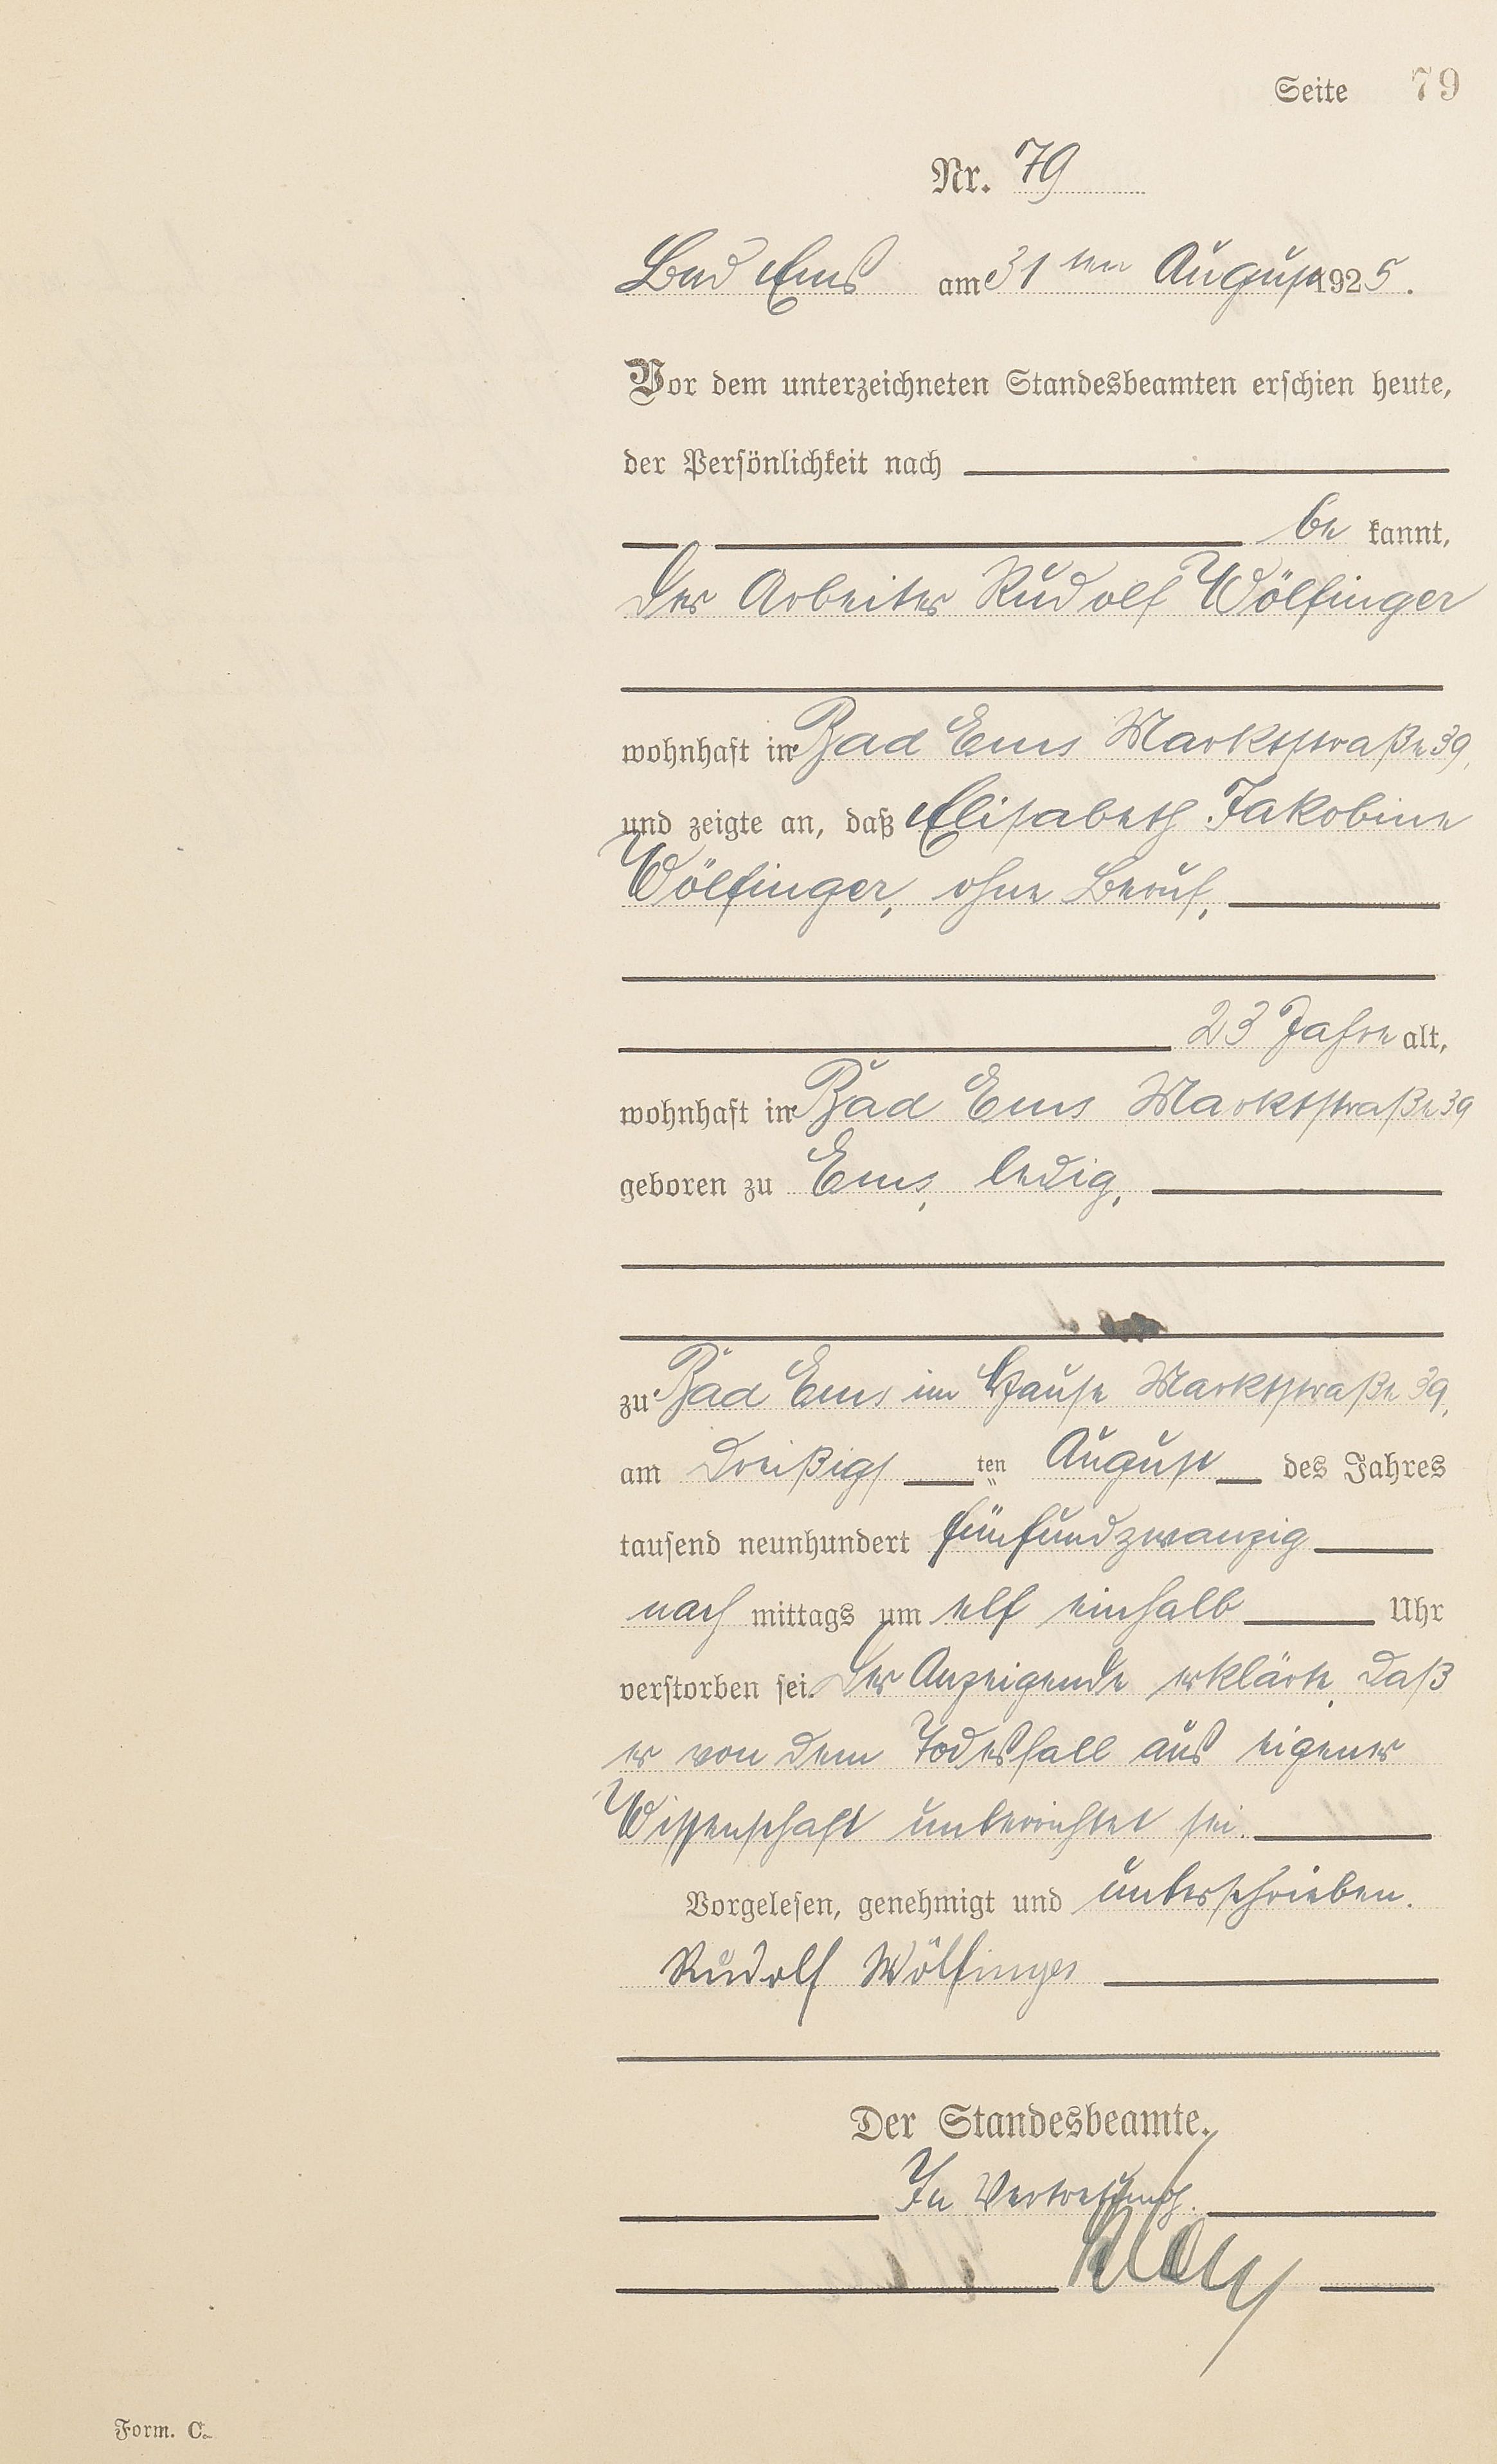 Seite 79
Nr. 79
Bad Ems am 31ten August 1925.
Vor dem unterzeichneten Standesbeamten erschien heute,
der Persönlichkeit nach
be kannt,
der Arbeiter Rudolf Wölfinger
wohnhaft in Bad Ems Marktstraße 39,
und zeigte an, daß Elisabeth Jakobine
Wölfinger, ohne Beruf,
23 Jahre alt,
wohnhaft in Bad Ems Marktstraße 39
geboren zu Ems, ledig,
zu Bad Ems im Hause Marktstraße 39,
am dreißigsten August des Jahres
tausend neunhundert fünfundzwanzig
nach mittags um elf einhalb Uhr
verstorben sei. Der Anzeigende erklärte, daß
er von dem Todesfall aus eigener
Wissenschaft unterrichtet sei.
Vorgelesen, genehmigt und unterschrieben.
Rudolf Wölfinger
Der Standesbeamte.
In Vertretung.
Form. C.